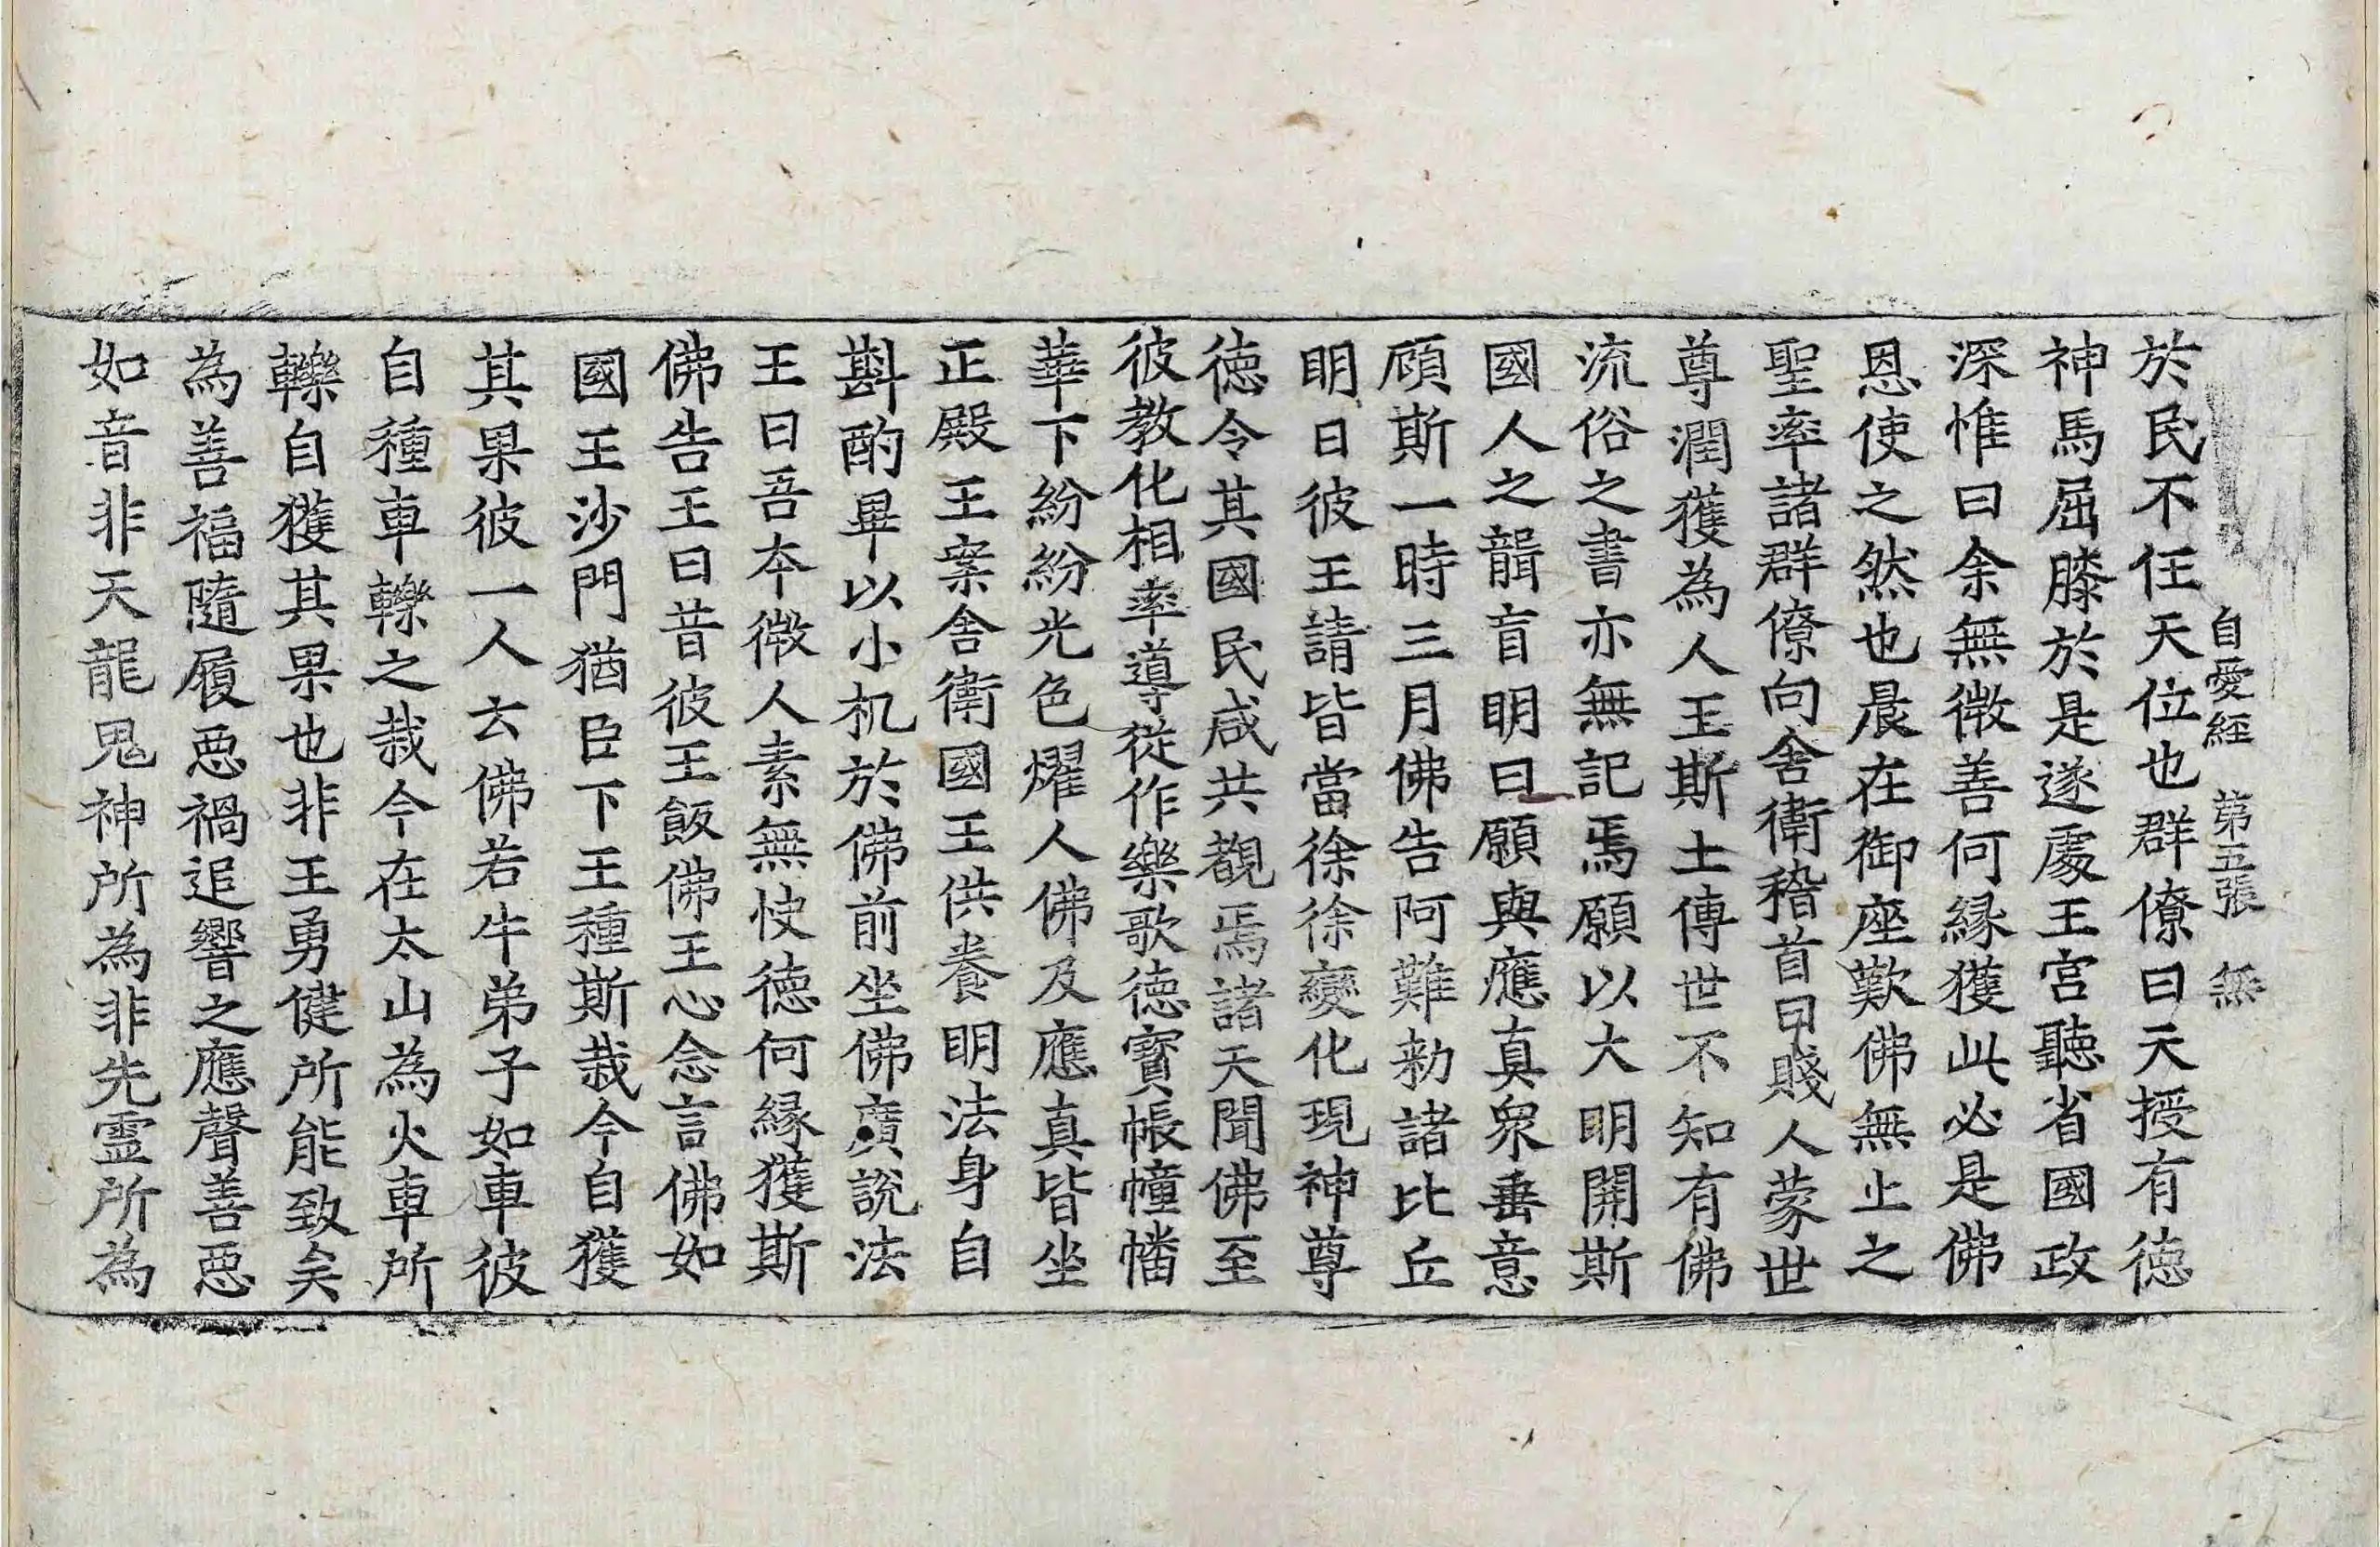 自愛經 第五張 無
於民不任天位也群僚曰天授有德
神馬屈膝於是遂處王宮聽省國政
深惟曰余無微善何緣獲此必是佛
恩使之然也晨在御座歎佛無止之
聖率諸群僚向舍衛稽首曰賤人蒙世
尊潤獲為人王斯土傳世不知有佛
流俗之書亦無記焉願以大明開斯
國人之聾盲明曰願與應真眾垂意
頋斯一時三月佛告阿難勑諸比丘
明日彼王請皆當徐徐變化現神尊
德令其國民咸共覩焉諸天聞佛至
彼教化相率導從作樂歌德寶帳幢幡
華下紛紛光色燿人佛及應真皆坐
正殿王案舍衛國王供養明法身自
斟酌畢以小机於佛前坐佛廣說法
王曰吾本微人素無快德何緣獲斯
佛告王曰昔彼王飯佛王心念言佛如
國王沙門猶臣下王種斯栽今自獲
其果彼一人云佛若牛弟子如車彼
自種車轢之栽今在太山為火車所
轢自獲其果也非王勇健所能致矣
為善福隨履惡禍追響之應聲善惡
如音非天龍鬼神所為非先靈所為